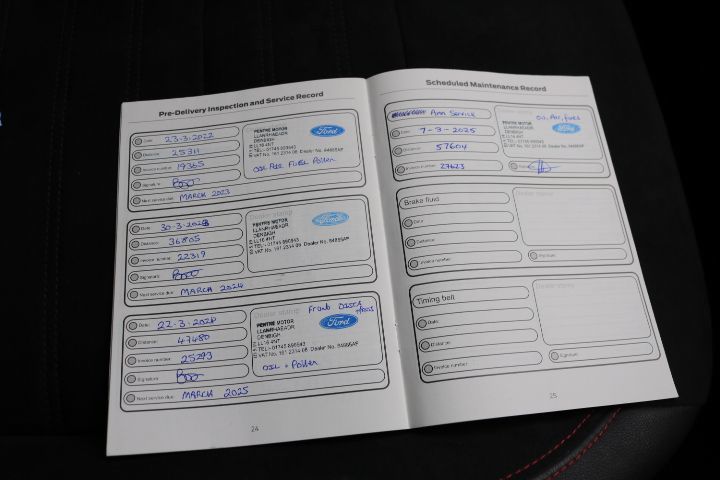 Pre-Delivery Inspection and Service Record
Date: 23-3-2022
Distance: 25311
Invoice number: 19365
Signature:
Next service due: MARCH 2023
PENTRE MOTOR
LLANRHAEADR
DENBIGH
LL16 4NT
TEL - 01745 890643
VAT No. 161 2314 08 Dealer No. 84665AF
Ford
OIL AIR FUEL Pollen
Date: 30-3-2023
Distance: 36805
Invoice number: 22317
Signature:
Next service due: MARCH 2024
Dealer stamp
PENTRE MOTOR
LLANRHAEADR
DENBIGH
LL16 4NT
TEL - 01745 890643
VAT No. 161 2314 08 Dealer No. 84665AF
Ford
Date: 22-3-2024
Distance: 47480
Invoice number: 25293
Signature:
Next service due: MARCH 2025
Dealer stamp
Front
PENTRE MOTOR
LLANRHAEADR
DENBIGH
LL16 4NT
TEL - 01745 890643
VAT No. 161 2314 08 Dealer No. 84665AF
Ford
OIL + Pollen
24
Scheduled Maintenance Record
Ann Service
Date: 7-3-2025
Distance: 57604
Invoice number: 27623
PENTRE MOTOR
LLANRHAEADR
DENBIGH
LL16 4NT
TEL - 01745 890643
VAT No. 161 2314 08 Dealer No. 84665AF
Oil, Air,
Ford
Brake fluid
Date:
Distance:
Invoice number:
Dealer stamp
Signature:
Timing belt
Date:
Distance:
Invoice number:
Dealer stamp
Signature:
25